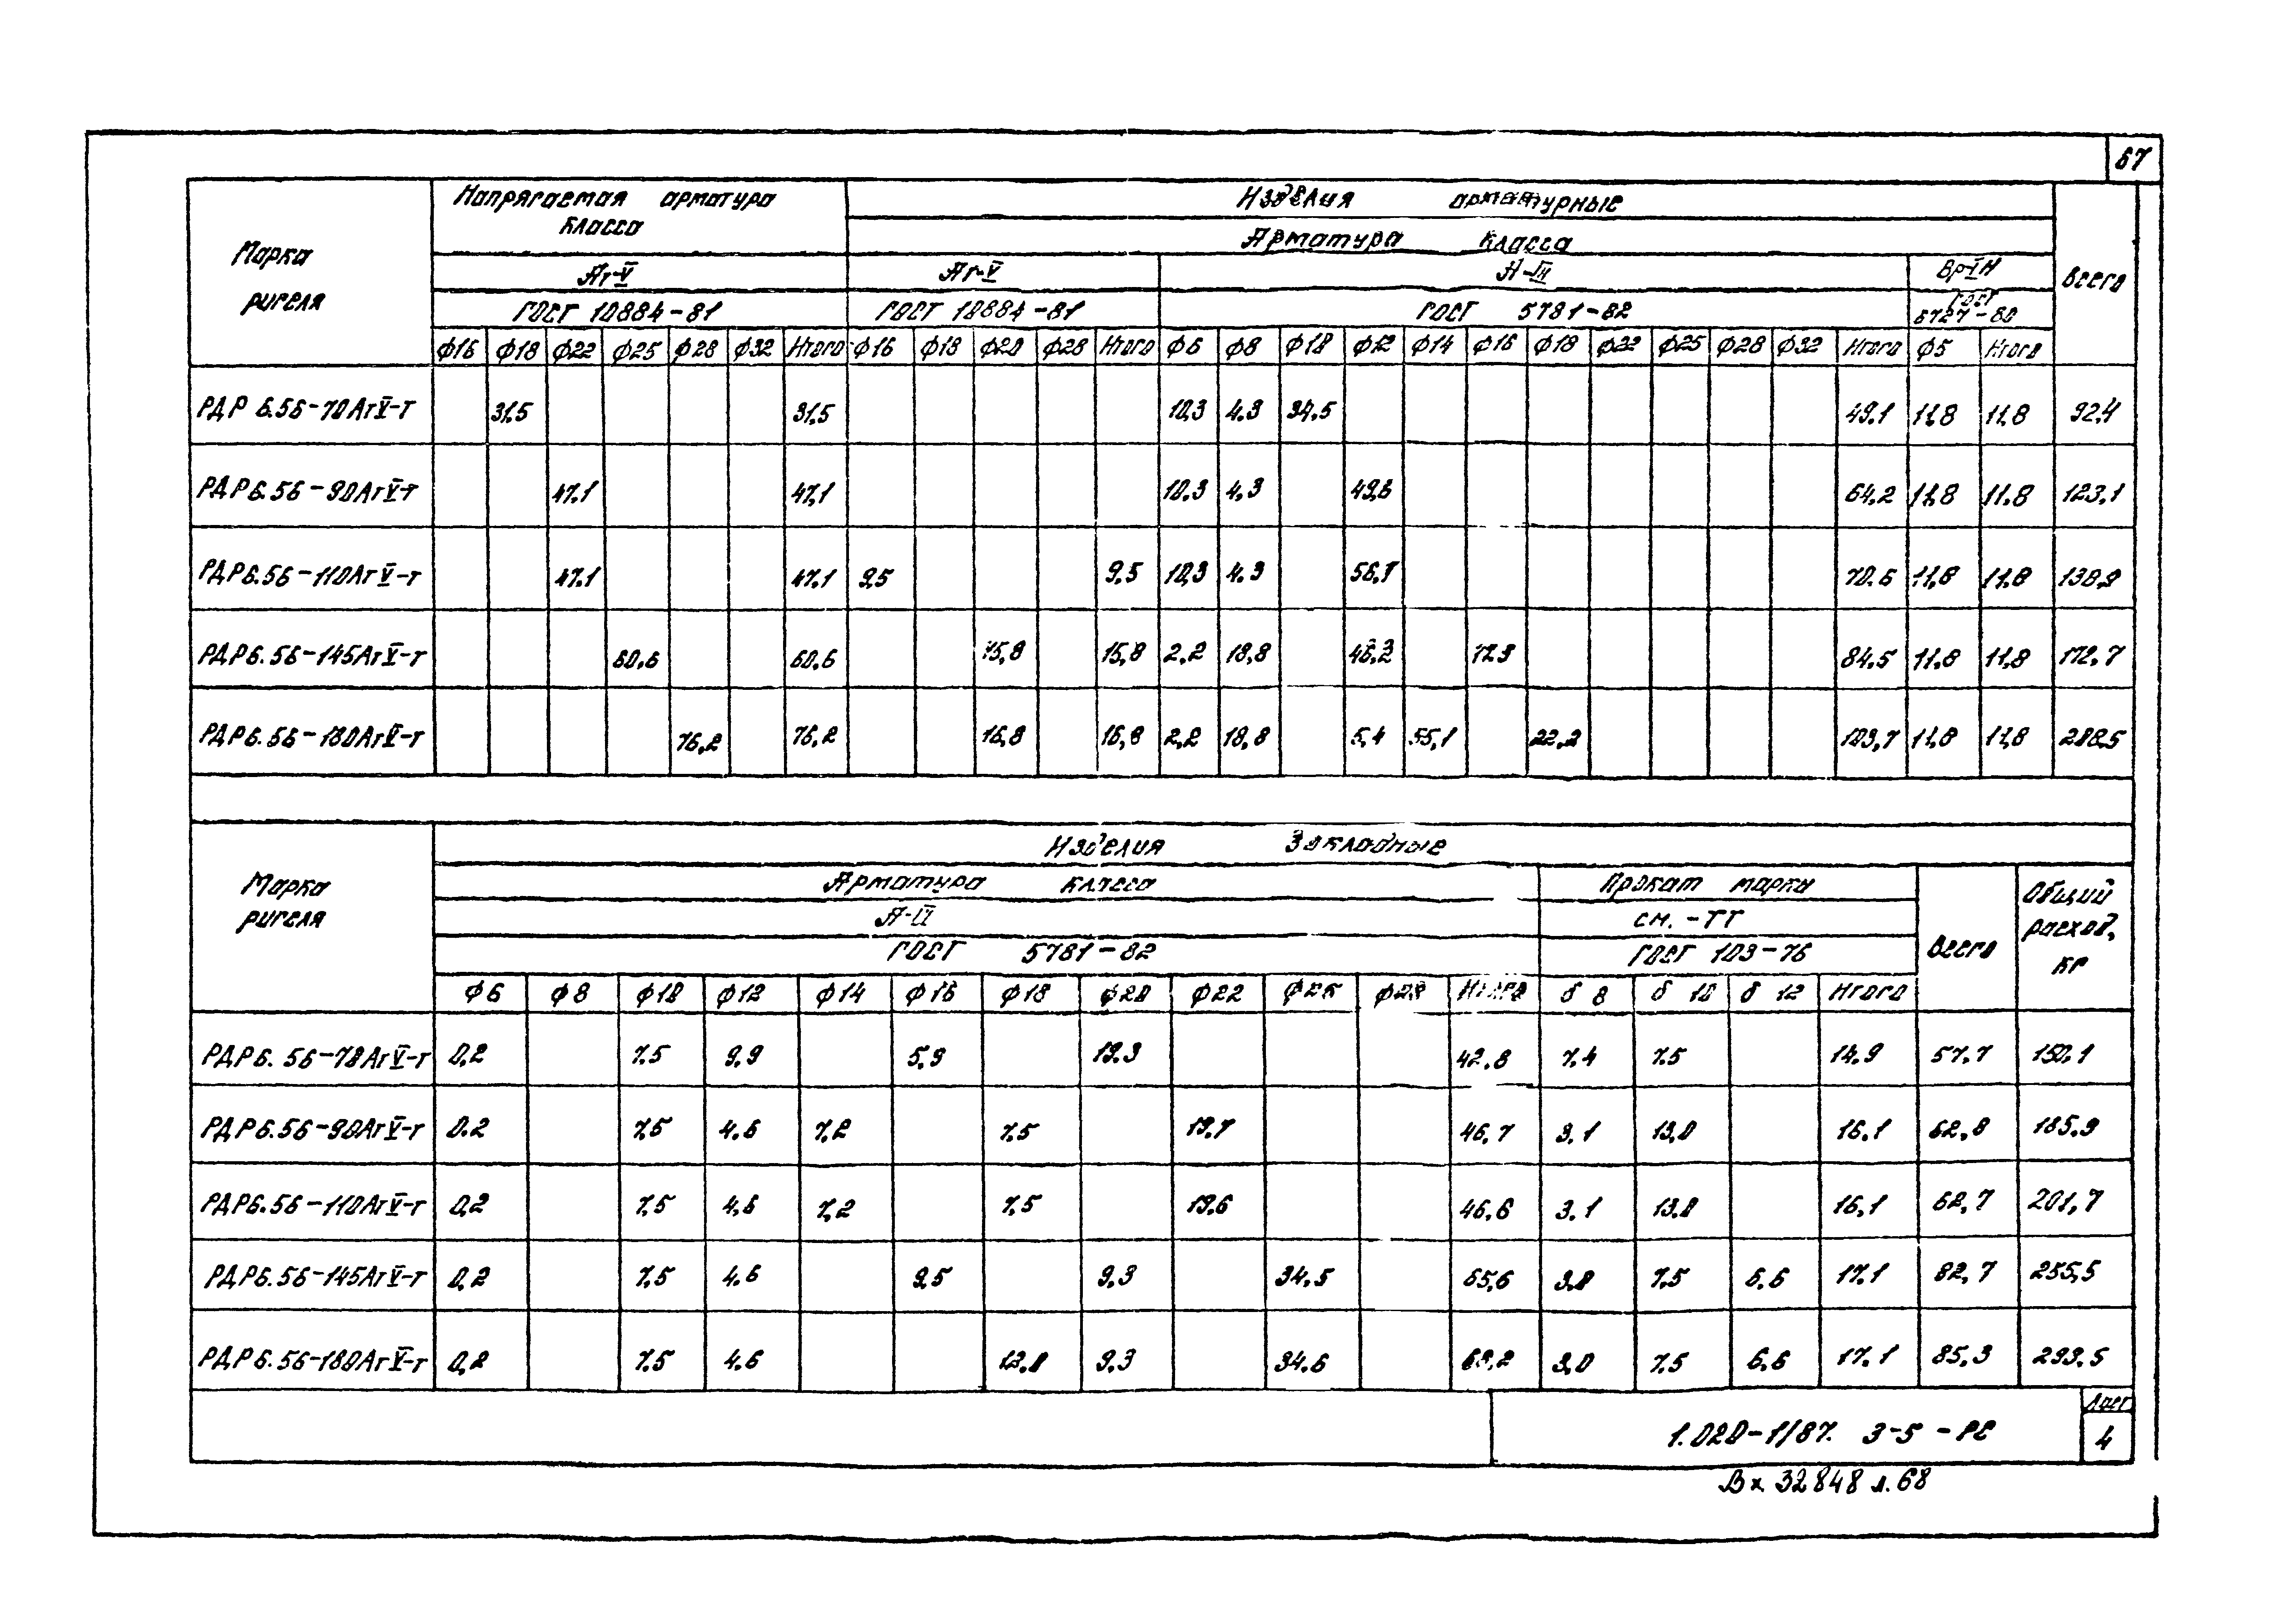 67
Марка ригеля | Напрягаемая арматура класса | Изделия арматурные | Всего
Арматура класса
Ат-V | Ат-V | А-III | Вр-I
ГОСТ 10884-81 | ГОСТ 10884-81 | ГОСТ 5781-82 | ГОСТ 6727-80
ф16 | ф18 | ф22 | ф25 | ф28 | ф32 | Итого | ф16 | ф18 | ф20 | ф28 | Итого | ф6 | ф8 | ф10 | ф12 | ф14 | ф16 | ф18 | ф22 | ф25 | ф28 | ф32 | Итого | ф5 | Итого
РДР 6.56-70АтV-т | 31,5 | 31,5 | 10,3 | 4.3 | 34.5 | 49.1 | 11,8 | 11,8 | 92,4
РДР6.56-90АтV-т | 47.1 | 47,1 | 10,3 | 4,3 | 49,6 | 64,2 | 11,8 | 11.8 | 123,1
РДР6.56-110АтV-т | 47.1 | 47.1 | 9,5 | 9,5 | 10,3 | 4.3 | 56,1 | 70.6 | 11,8 | 11,8 | 138,9
РДР6.56-145АтV-т | 60,6 | 60,6 | 15,8 | 15,8 | 2,2 | 18,8 | 46,2 | 17.3 | 84,5 | 11,8 | 11,8 | 172,7
РДР6.56-180АтV-т | 76,2 | 76,2 | 16,8 | 16,8 | 2,2 | 18,8 | 5,4 | 55,1 | 22,2 | 103,7 | 11,8 | 11,8 | 208,5
Марка ригеля | Изделия закладные
Арматура класса | Прокат марки | Всего | Общий расход, кг
А-II | см. -ТТ
ГОСТ 5781-82 | ГОСТ 103-76
ф6 | ф8 | ф10 | ф12 | ф14 | ф16 | ф18 | ф20 | ф22 | ф25 | ф28 | Итого | б 8 | б 10 | б 12 | Итого
РДР6.56-70АтV-т | 0,2 | 7.5 | 9.9 | 5,9 | 19.3 | 42.8 | 7,4 | 7.5 | 14.9 | 57.7 | 150,1
РДР6.56-90АтV-т | 0.2 | 7,5 | 4.6 | 7,2 | 7.5 | 19.7 | 46,7 | 3.1 | 13,0 | 16.1 | 62,8 | 185,9
РДР6.56-110АтV-т | 0,2 | 7,5 | 4,6 | 7,2 | 7,5 | 19.6 | 46,6 | 3.1 | 13.0 | 16,1 | 62,7 | 201,7
РДР6.56-145АтV-т | 0,2 | 7,5 | 4.6 | 9,5 | 9,3 | 34,5 | 65,6 | 3.0 | 7,5 | 6,6 | 17.1 | 82,7 | 255,5
РДР6.56-180АтV-т | 0,2 | 7.5 | 4.6 | 12.0 | 9,3 | 34.6 | 68,2 | 3,0 | 7,5 | 6.6 | 17.1 | 85,3 | 293.5
1.020-1/87. 3-5 -РС
Лист
4
Вх 32848 л.68